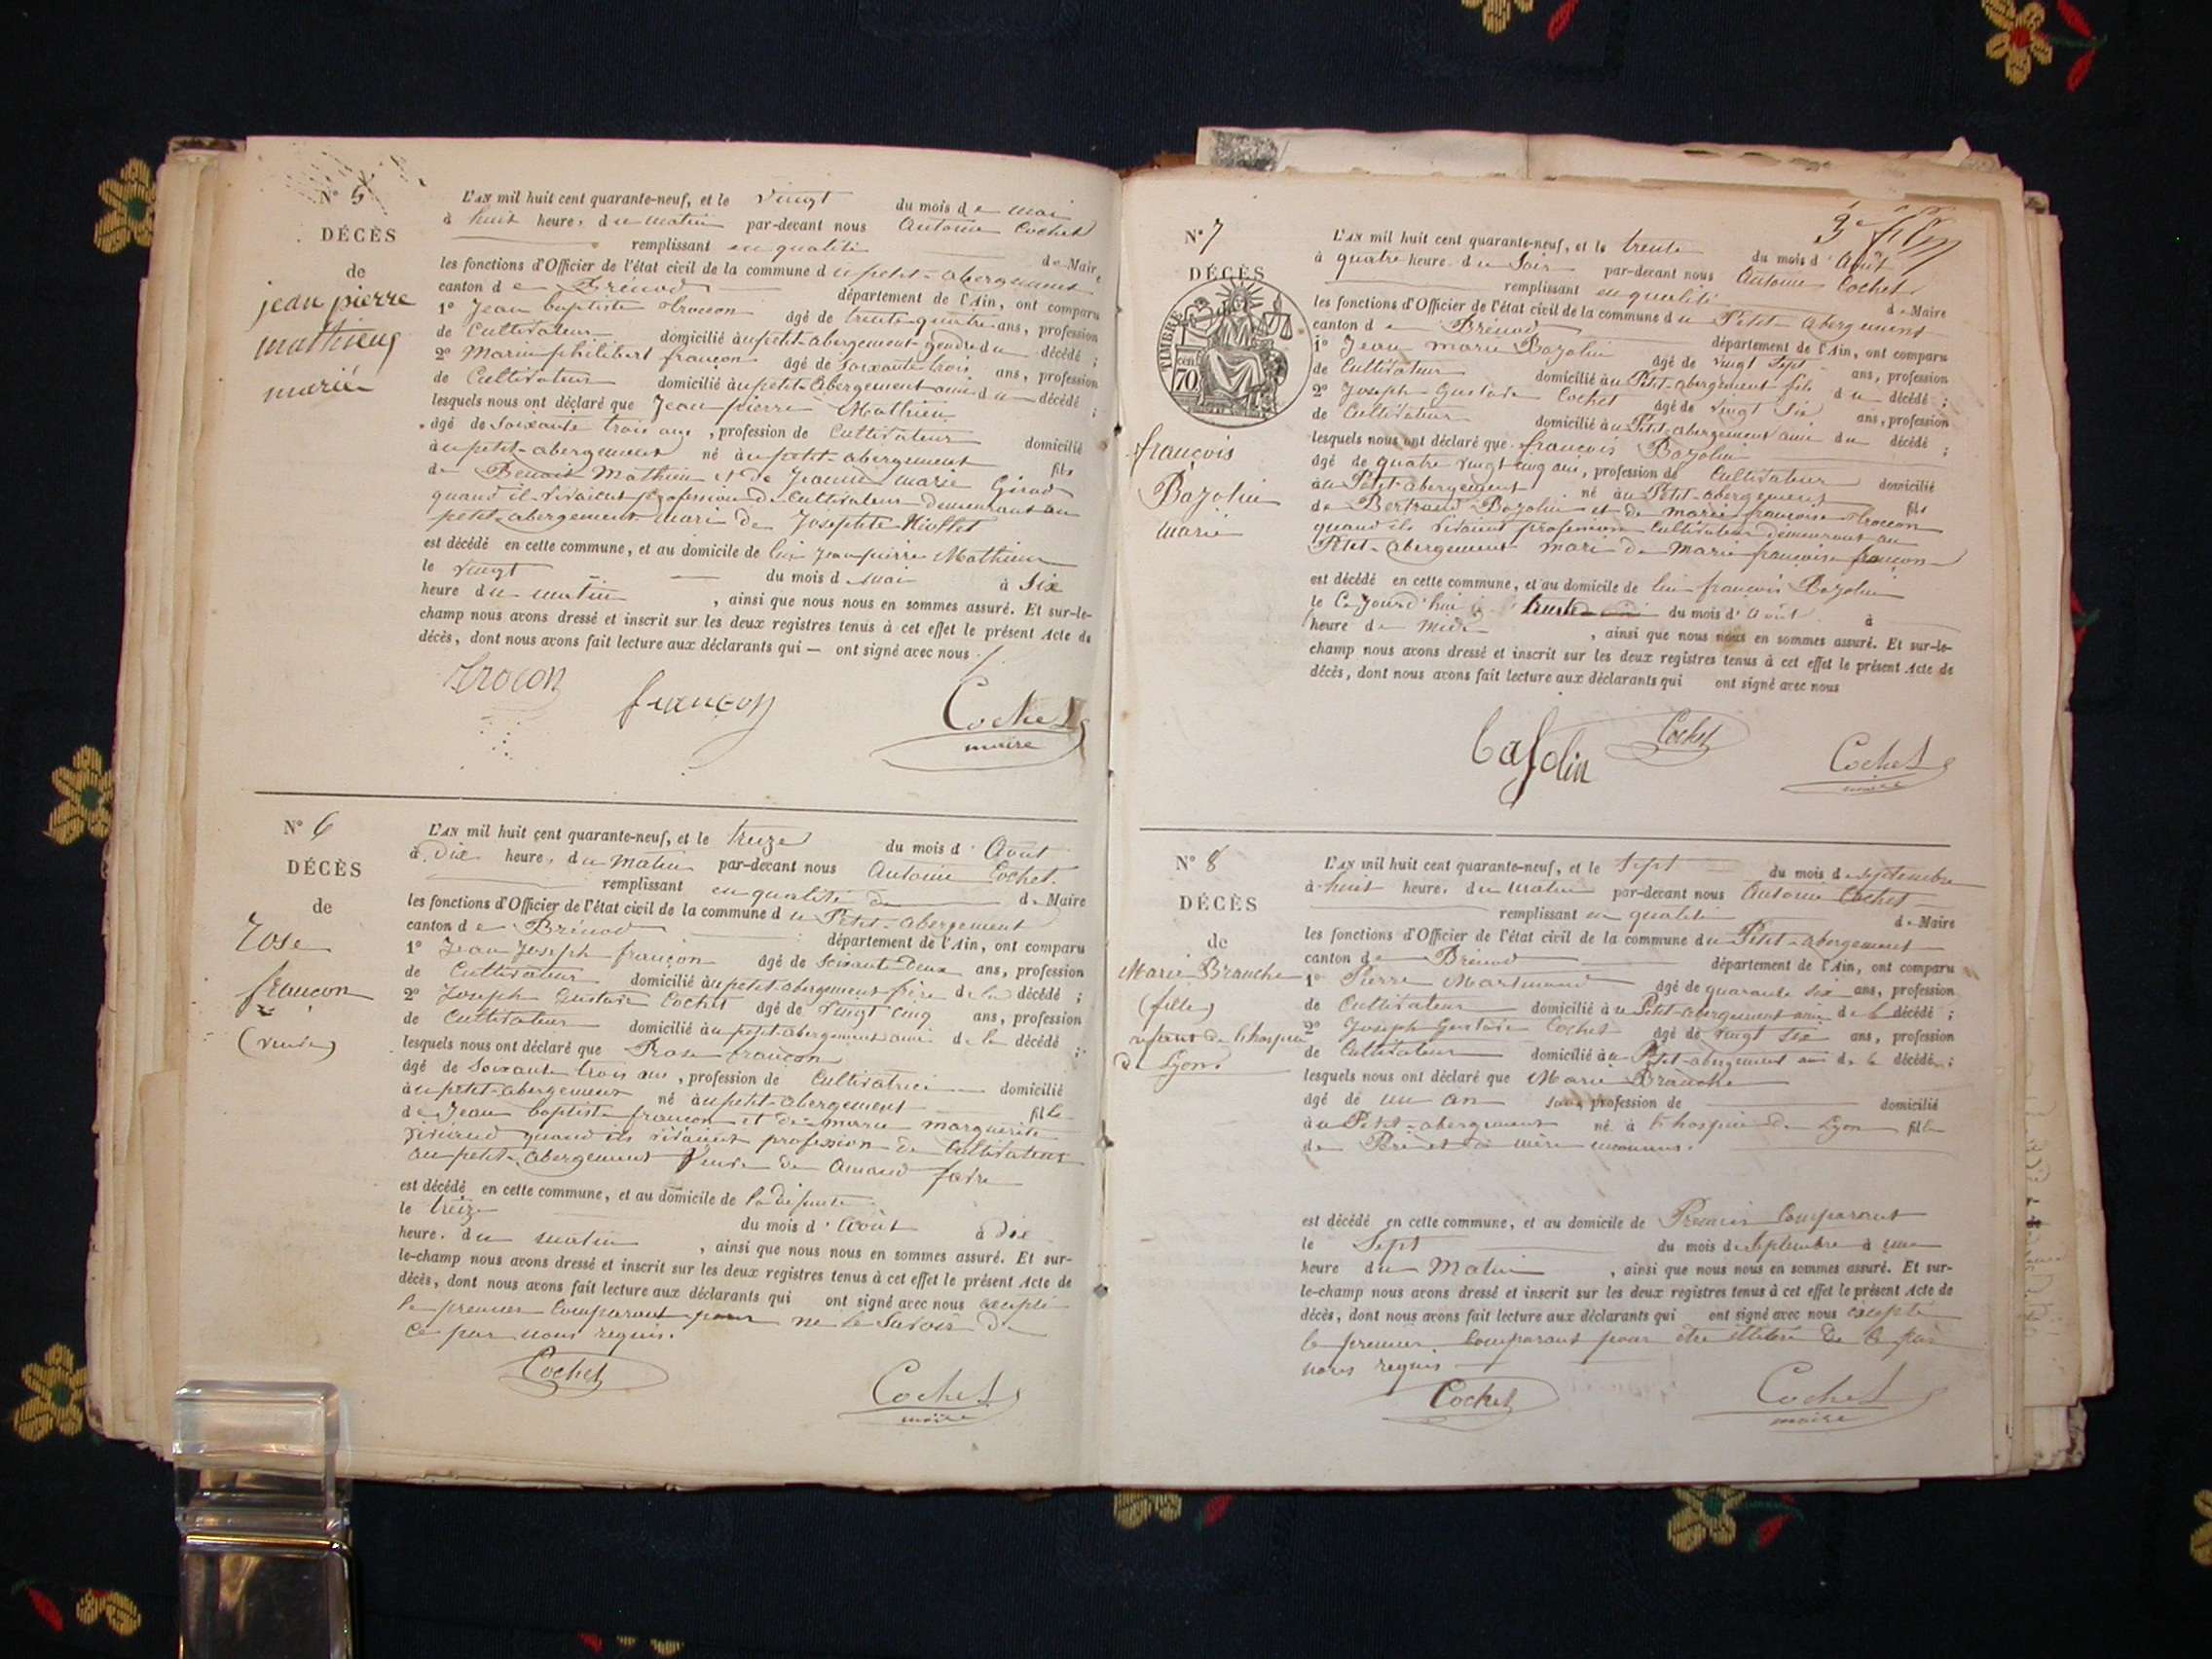 N° 5
DÉCÈS
de
jean pierre
mathieu
marié
L'AN mil huit cent quarante-neuf, et le vingt du mois de mai
à huit heure, du matin par-devant nous Antoine Cochet
remplissant en qualité de Maire
les fonctions d'Officier de l'état civil de la commune du petit-abergement
canton de Brenod département de l'Ain, ont comparu
1° Jean baptiste Trocon âgé de trente quatre ans, profession
de Cultivateur domicilié au petit-abergement gendre du décédé ;
2° Marin philibert françon âgé de soixante trois ans, profession
de Cultivateur domicilié au petit-abergement ami du décédé ;
lesquels nous ont déclaré que Jean pierre Mathieu
âgé de soixante trois ans, profession de Cultivateur domicilié
au petit-abergement né au petit-abergement fils
de Benoit Mathieu et de Jeanne marie Girod
quand il vivaient profession de Cultivateur demeurant au
petit-abergement mari de Josephte
est décédé en cette commune, et au domicile de lui Jean pierre Mathieu
le vingt du mois de mai à Six
heure du matin , ainsi que nous nous en sommes assuré. Et sur-le-
champ nous avons dressé et inscrit sur les deux registres tenus à cet effet le présent Acte de
décès, dont nous avons fait lecture aux déclarants qui — ont signé avec nous
trocon
françon
Cochet
maire
N° 6
DÉCÈS
de
Rose
françon
(veuve)
L'AN mil huit cent quarante-neuf, et le treize du mois d'Août
à Dix heure, du matin par-devant nous Antoine Cochet
remplissant en qualité de de Maire
les fonctions d'Officier de l'état civil de la commune du Petit-abergement
canton de Brénod département de l'Ain, ont comparu
1° Jean Joseph françon âgé de soixante deux ans, profession
de Cultivateur domicilié au petit abergement frère de la décédé ;
2° Joseph Gustave Cochet âgé de vingt cinq ans, profession
de Cultivateur domicilié au petit abergement ami de la décédé ;
lesquels nous ont déclaré que Rose françon
âgé de soixante trois ans, profession de Cultivatrice domicilié
au petit-abergement né au petit-abergement fille
de Jean baptiste françon et de marie marguerite
quand ils vivaient profession de Cultivateur
au petit-abergement veuve de Amand favre
est décédé en cette commune, et au domicile de la défunte
le treize du mois d'Août à dix
heure, du matin , ainsi que nous nous en sommes assuré. Et sur-
le-champ nous avons dressé et inscrit sur les deux registres tenus à cet effet le présent Acte de
décès, dont nous avons fait lecture aux déclarants qui ont signé avec nous excepté
le premier Comparant pour ne le savoir de
ce par nous requis.
Cochet
Cochet
maire
N° 7
DÉCÈS
TIMBRE
70 cen
françois
Bozolin
marié
L'AN mil huit cent quarante-neuf, et le trente du mois d'Août
à quatre heure du Soir par-devant nous Antoine Cochet
remplissant en qualité de Maire
les fonctions d'Officier de l'état civil de la commune du Petit-abergement
canton de Brénod département de l'Ain, ont comparu
1° Jean marie Bozolin âgé de vingt sept ans, profession
de Cultivateur domicilié au Petit-abergement fils du décédé ;
2° Joseph Gustave Cochet âgé de vingt six ans, profession
de Cultivateur domicilié au Petit-abergement ami du décédé ;
lesquels nous ont déclaré que françois Bozolin
âgé de quatre vingt cinq ans, profession de Cultivateur domicilié
au Petit-abergement né au Petit-abergement fils
de Bertrand Bozolin et de marie françoise Trocon
quand ils vivaient profession Cultivateur demeurant au
Petit-abergement mari de Marie françoise françon
est décédé en cette commune, et au domicile de lui françois Bozolin
le Ce Jourd'hui trente du mois d'Août à
heure de Midi , ainsi que nous nous en sommes assuré. Et sur-le-
champ nous avons dressé et inscrit sur les deux registres tenus à cet effet le présent Acte de
décès, dont nous avons fait lecture aux déclarants qui ont signé avec nous
Cochet
Cochet
maire
N° 8
DÉCÈS
de
Marie Branche
(fille)
enfant de l'hospice
de Lyon
L'AN mil huit cent quarante-neuf, et le Sept du mois de septembre
à huit heure, du matin par-devant nous Antoine Cochet
remplissant en qualité de Maire
les fonctions d'Officier de l'état civil de la commune du Petit-abergement
canton de Brénod département de l'Ain, ont comparu
1° Pierre Marinand âgé de quarante six ans, profession
de Cultivateur domicilié au Petit-abergement ami de la décédé ;
2° Joseph Gustave Cochet âgé de vingt six ans, profession
de Cultivateur domicilié au Petit-abergement ami de la décédée ;
lesquels nous ont déclaré que Marie Branche
âgé de un an sans profession de domicilié
au Petit-abergement né à l'hospice de Lyon fille
de Père et de mère inconnus.
est décédé en cette commune, et au domicile de Premier Comparant
le Sept du mois de septembre à une
heure du Matin , ainsi que nous nous en sommes assuré. Et sur-
le-champ nous avons dressé et inscrit sur les deux registres tenus à cet effet le présent Acte de
décès, dont nous avons fait lecture aux déclarants qui ont signé avec nous excepté
le premier Comparant pour être illitéré de Ce par
nous requis
Cochet
Cochet
maire